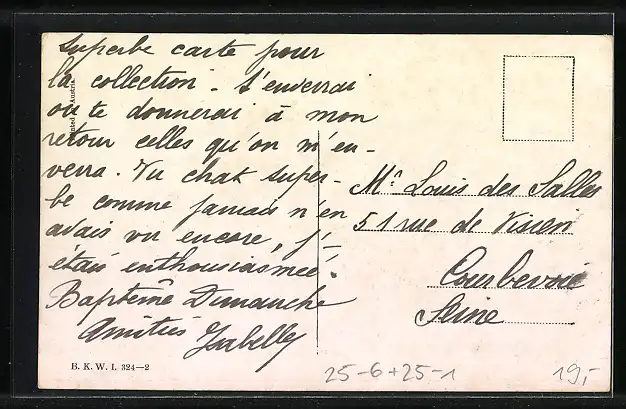 Superbe carte pour
la collection. t'enverrai
ou te donnerai à mon
retour celles qu'on m'en-
verra. Vu chat super-
be comme jamais n'en
avais vu encore, j'-
étais enthousiasmée.
Baptême Dimanche
Amitiés Isabelle
Printed in Austria
Mr Louis des Salles
51 rue de
Courbevoie
Seine
B. K. W. I. 324—2
25-6+25-1
19,-